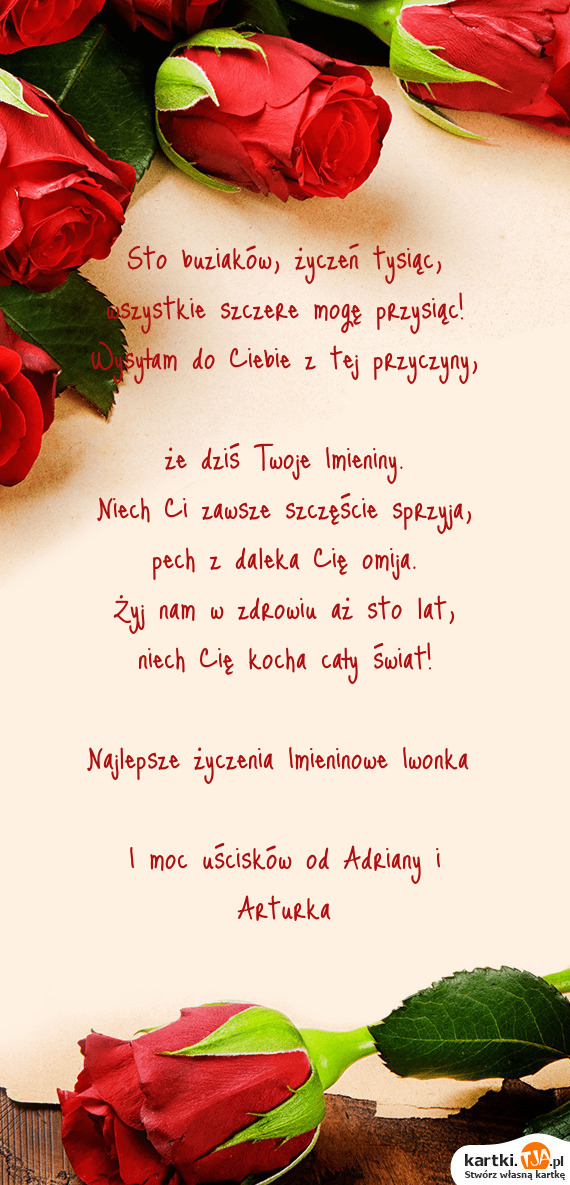 Sto buziaków, życzeń tysiąc,
wszystkie szczere mogę przysiąc!
Wysyłam do Ciebie z tej przyczyny,
że dziś Twoje Imieniny.
Niech Ci zawsze szczęście sprzyja,
pech z daleka Cię omija.
Żyj nam w zdrowiu aż sto lat,
niech Cię kocha cały świat!
Najlepsze życzenia Imieninowe Iwonka
I moc uścisków od Adriany i
Arturka
kartki.TJA.pl
Stwórz własną kartkę